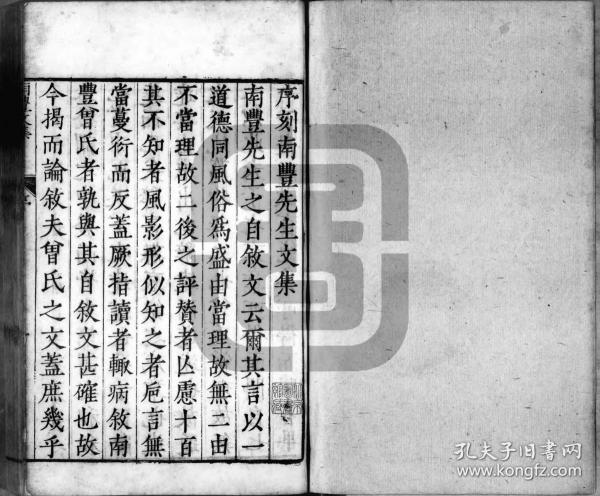 序刻南豐先生文集
南豐先生之自敘文云爾其言以一
道德同風俗為盛由當理故無二由
不當理故二後之評贊者亾慮十百
其不知者風影形似知之者巵言無
當蔓衍而反蓋厥指讀者輙病敘南
豐曾氏者孰與其自敘文甚確也故
今揭而論敘夫曾氏之文蓋庶幾乎
孔夫子旧书网
www.kongfz.com